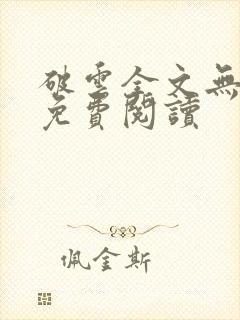 破雲全文無
免費閱讀
佩金斯